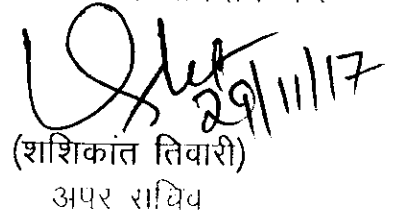 29/11/17
(शशिकांत तिवारी)
अपर सचिव